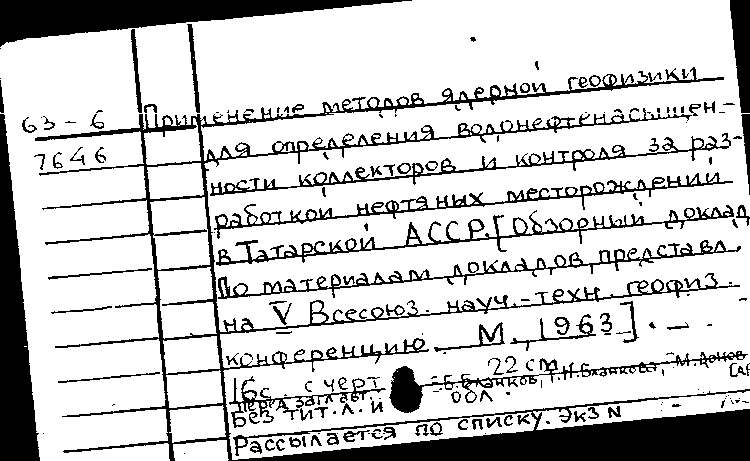 63-6 Применение методов ядерной геофизики
7646 для определения водонефтенасыщен-
ности коллекторов и контроля за раз-
работкой нефтяных месторождений
в Татарской АССР. [Обзорный доклад
По материалам докладов, представл.
на V Всесоюз. науч.-техн. геофиз.
конференцию. М., 1963]. -
16с. с черт. 22 см
Перед заглавт.: Б.Бланков, Т.Н.Бланкова, М.
Без тит. л. и обл.
Рассылается по списку. Экз N